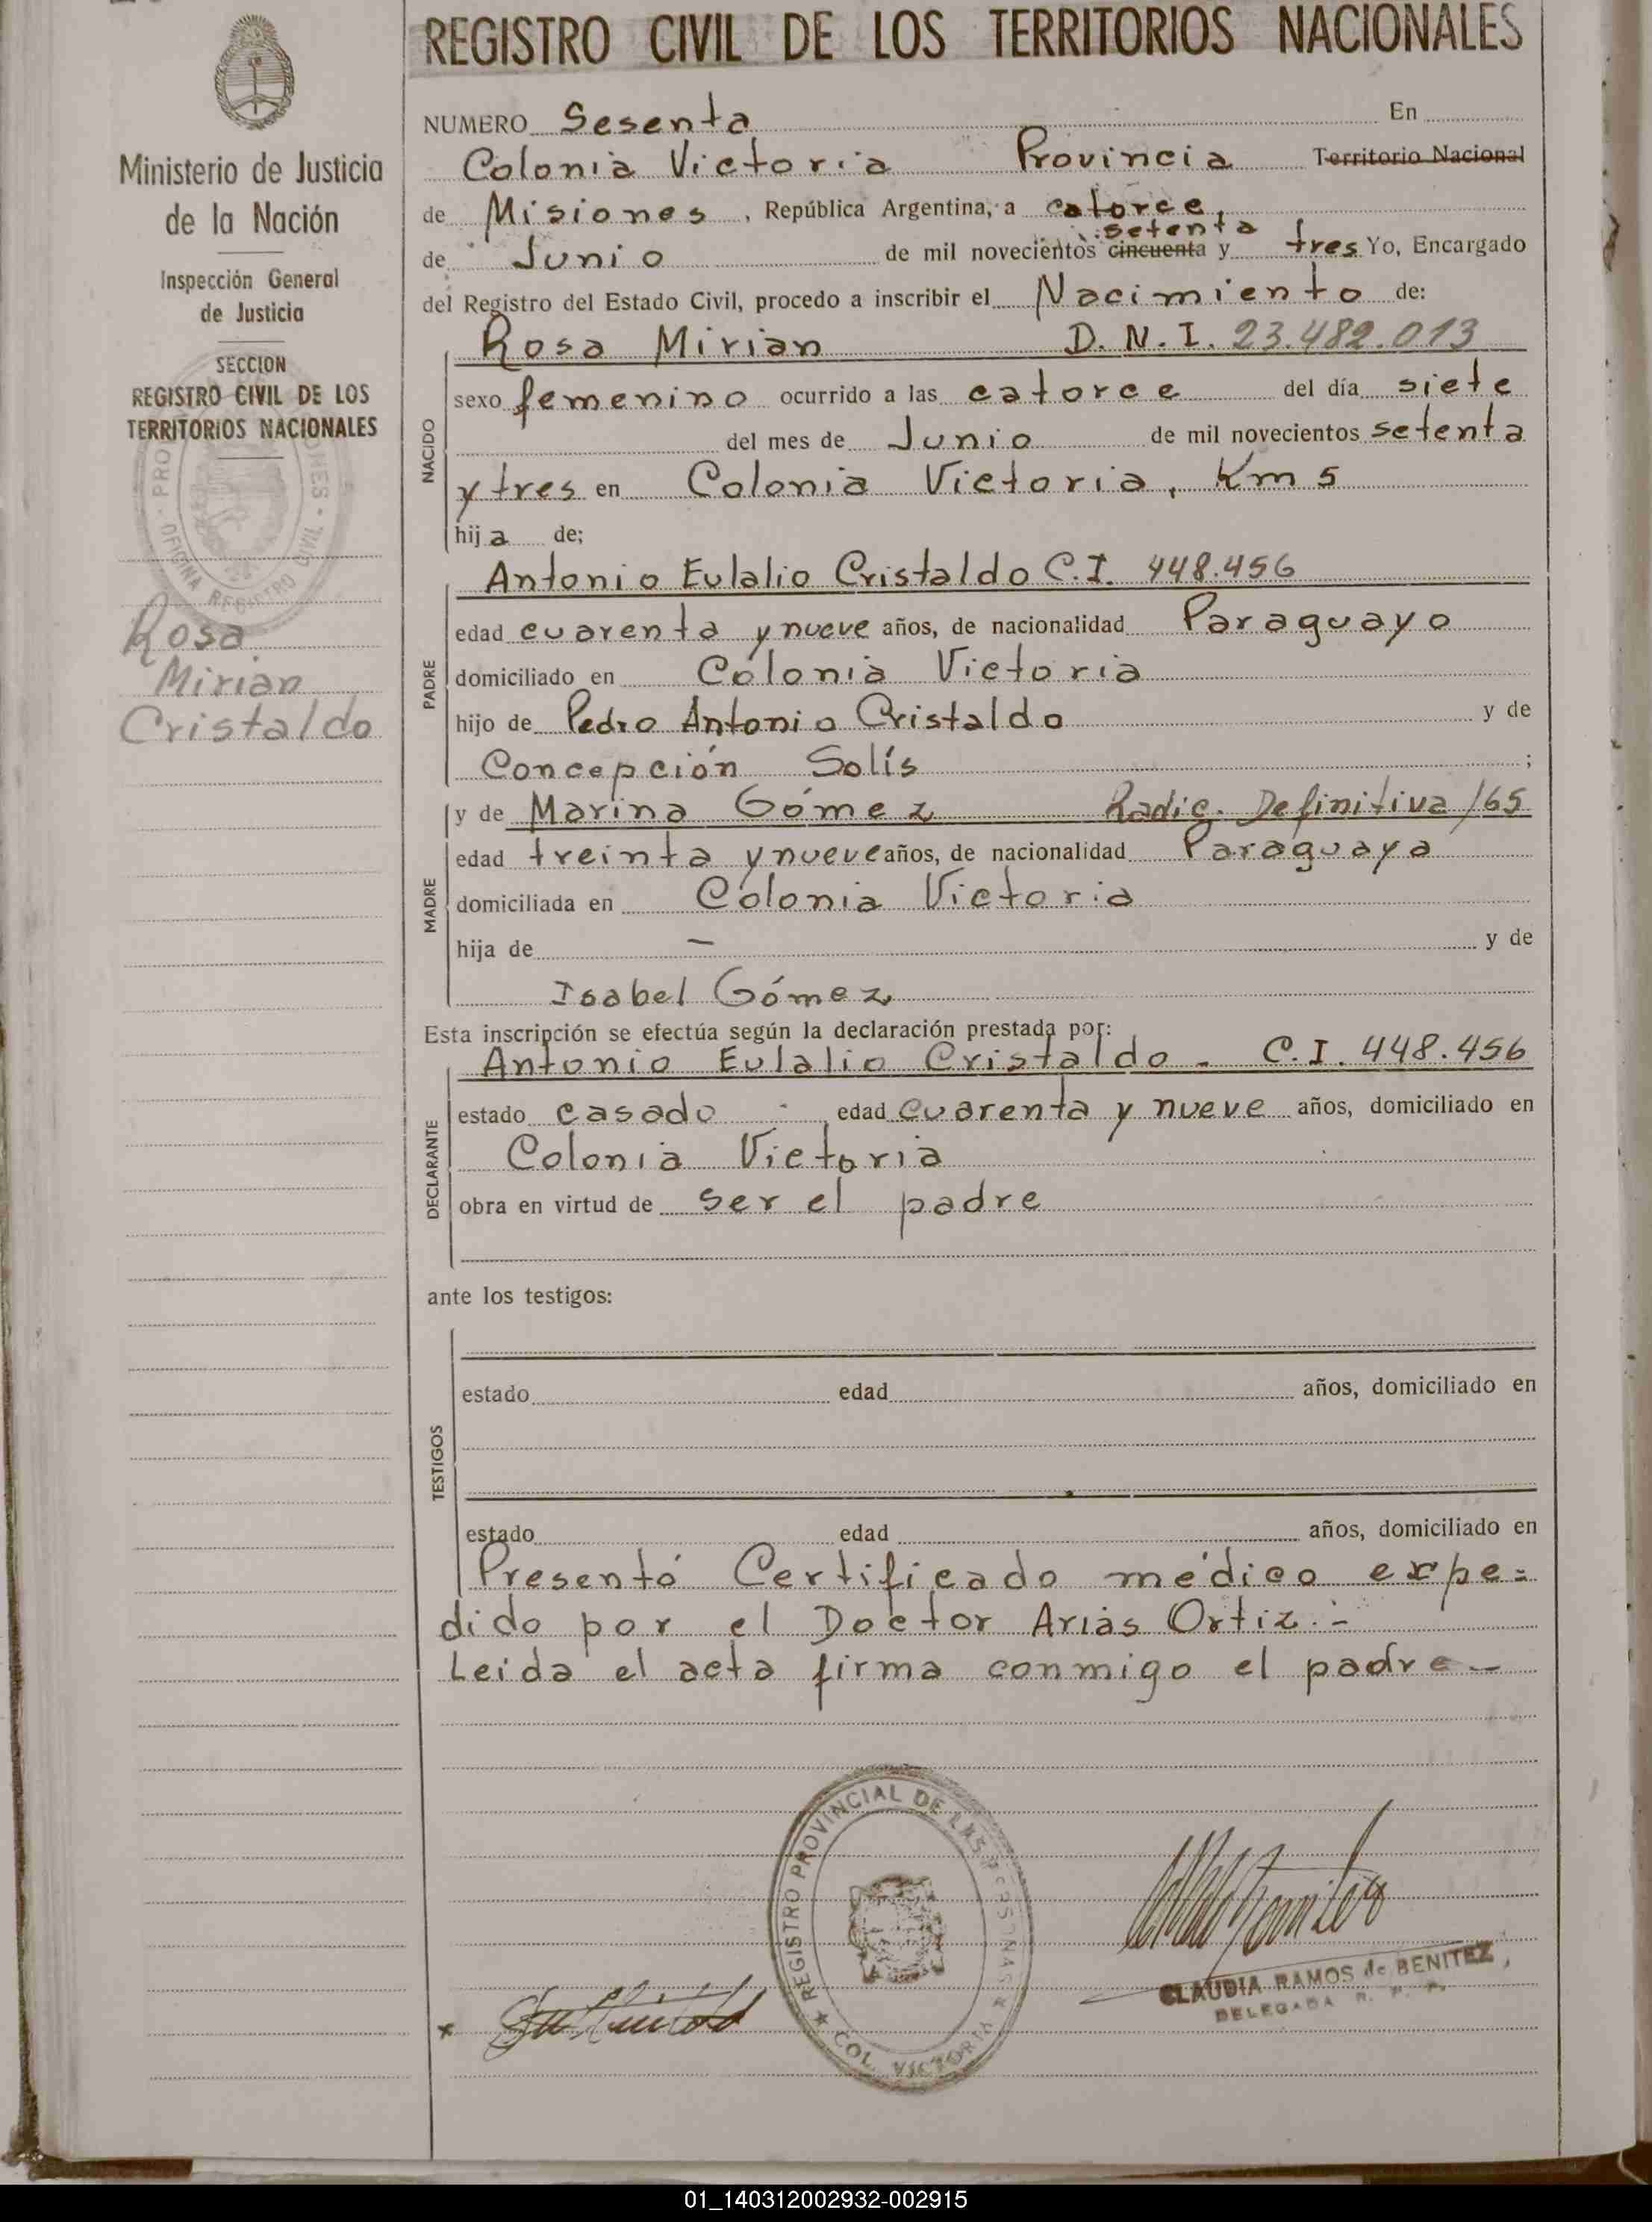 REGISTRO CIVIL DE LOS TERRITORIOS NACIONALES
Ministerio de Justicia
de la Nación
Inspección General
de Justicia
SECCION
REGISTRO CIVIL DE LOS
TERRITORIOS NACIONALES
Rosa
Mirian
Cristaldo
NUMERO Sesenta En
Colonia Victoria Provincia Territorio Nacional
de Misiones, República Argentina, a catorce,
setenta
de Junio de mil novecientos cincuenta y tres Yo, Encargado
del Registro del Estado Civil, procedo a inscribir el Nacimiento de:
NACIDO
Rosa Mirian D.N.I. 23.482.013
sexo femenino ocurrido a las catorce del día siete
del mes de Junio de mil novecientos setenta
y tres en Colonia Victoria, Km 5
hija de;
PADRE
Antonio Eulalio Cristaldo C.I. 448.456
edad cuarenta y nueve años, de nacionalidad Paraguayo
domiciliado en Colonia Victoria
hijo de Pedro Antonio Cristaldo y de
Concepción Solís ;
MADRE
y de Marina Gómez Radic. Definitiva /65
edad treinta y nueve años, de nacionalidad Paraguaya
domiciliada en Colonia Victoria
hija de — y de
Isabel Gómez
Esta inscripción se efectúa según la declaración prestada por:
DECLARANTE
Antonio Eulalio Cristaldo - C.I. 448.456
estado casado edad cuarenta y nueve años, domiciliado en
Colonia Victoria
obra en virtud de ser el padre
ante los testigos:
TESTIGOS
estado edad años, domiciliado en
estado edad años, domiciliado en
Presentó Certificado médico expe=
dido por el Doctor Arias Ortiz.-
Leida el acta firma conmigo el padre-
REGISTRO PROVINCIAL DE LAS PERSONAS
COL. VICTORIA
CLAUDIA RAMOS de BENITEZ
DELEGADA R. P. P.
01_140312002932-002915